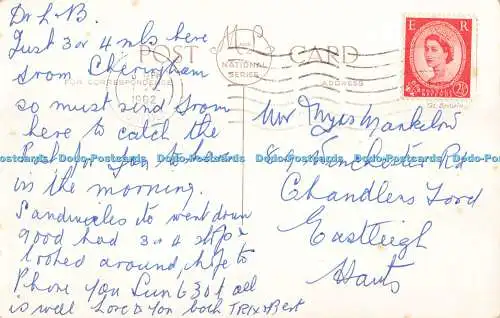 Dr L. B.
Just 3 or 4 mls here
from
so must send from
here to catch the
Post for you to have
in the morning.
Sandwiches to went down
good had 3 or 4 stops
looked around, hope to
Phone you Sun 6.30 all
is well Love to you both TRIX & Bert
POST CARD
FOR CORRESPONDENCE
ADDRESS
NATIONAL
SERIES
1962
E R
POSTAGE
REVENUE
2½D
Winchester Rd
Chandlers Ford
Eastleigh
Hants
Dodo-Postcards Dodo-Postcards Dodo-Postcards Dodo-Postcards Dodo-Postcards